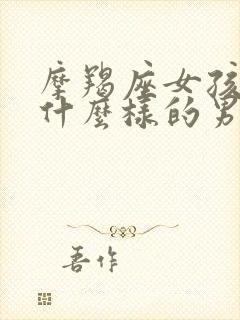 摩羯座女孩
什麼樣的男
吾作